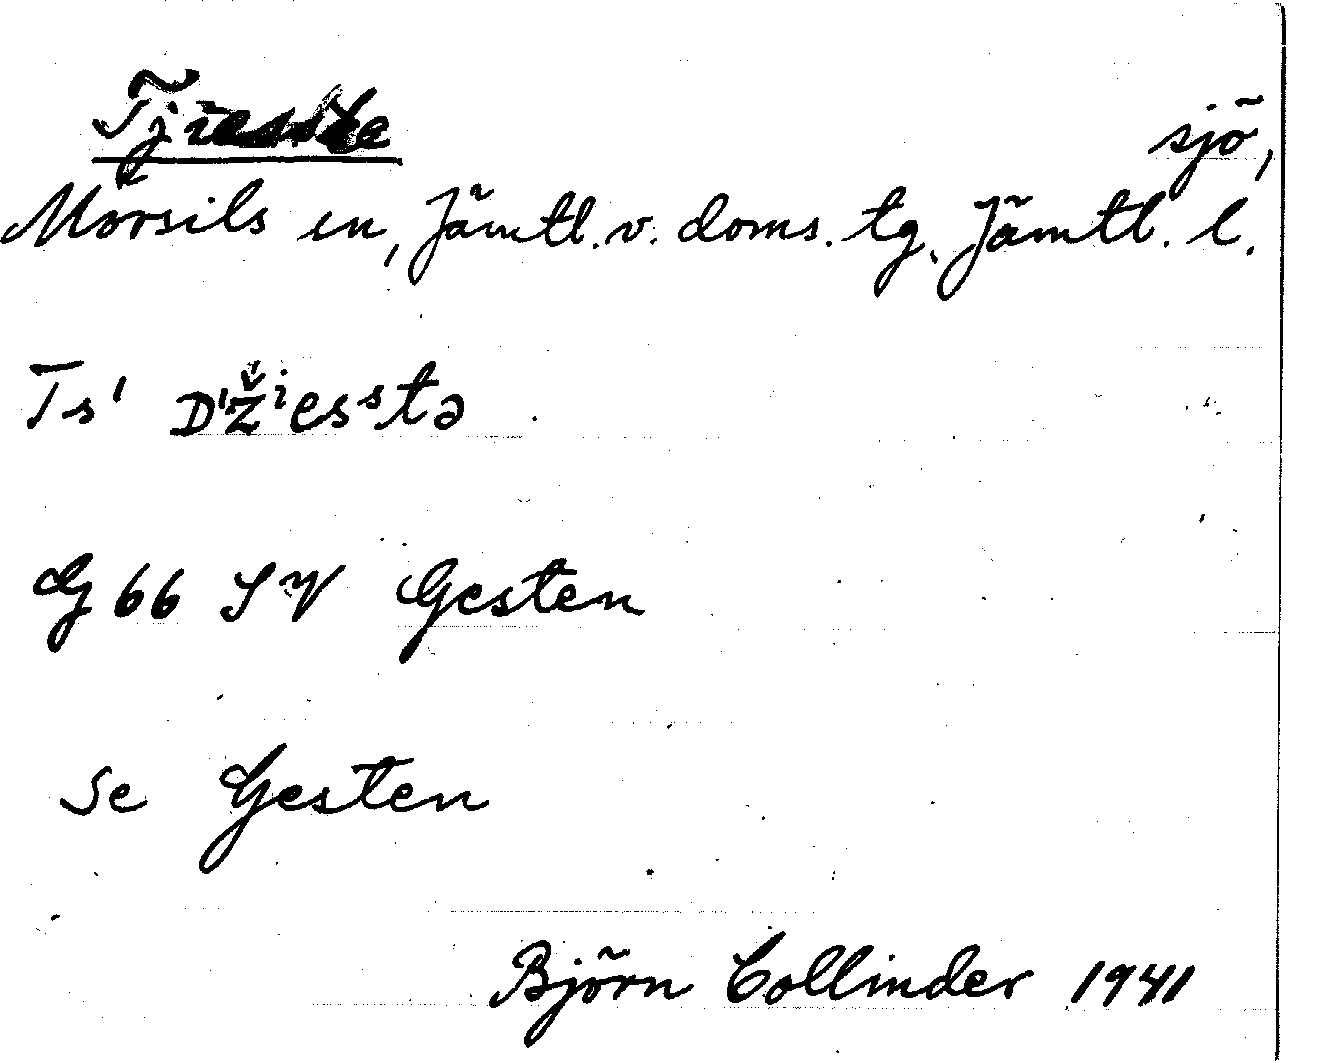 Tjiesste sjö,
Mörsils sn, Jämtl. v. doms. tg. Jämtl. l.
Ts' D'ž̌ⁱesˢtə
G 66 SV Gesten
Se Gesten
Björn Collinder 1941